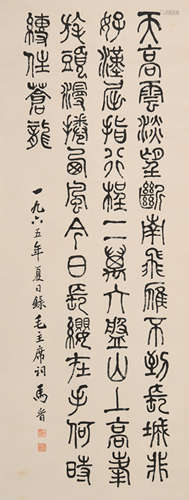 天高雲淡望斷南飛雁不到長城非
好漢屈指行程二萬六盤山上高峯
旄頭漫捲西風今日長纓在手何時
縛住蒼龍
一九六五年夏日錄毛主席詞 馬晉